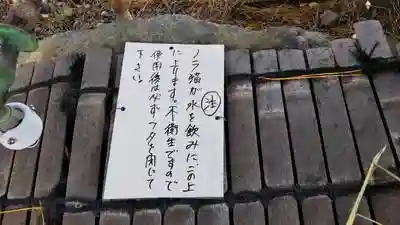 注
ノラ猫が水を飲みに、この上
に上ります。不衛生ですので
使用後は必ずフタを閉じて
下さい。